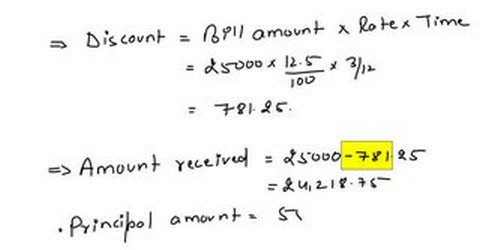 ⇒ Discount = Bill amount × Rate × Time
= 25000 × 12.5/100 × 3/12
= 781.25.
⇒ Amount received = 25000 - 781.25
= 24,218.75
. Principal amount = 5